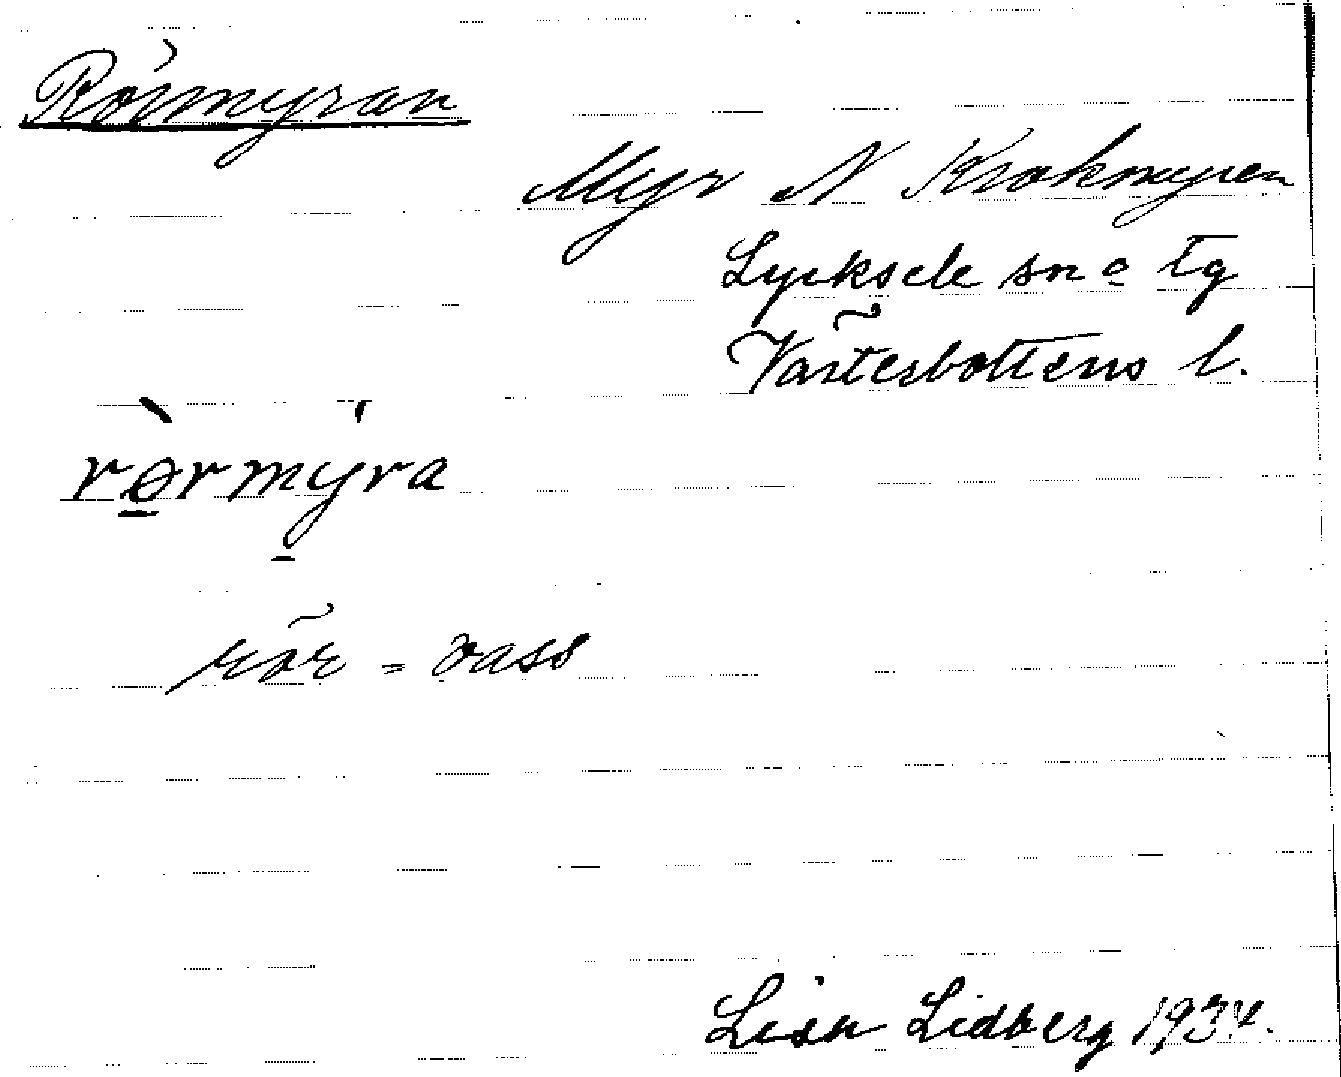 Rörmyran
Myr N Krokmyren
Lycksele sn o tg
Västerbottens l.
rørmyra
rör = vass
Lisa Lidberg 1934.